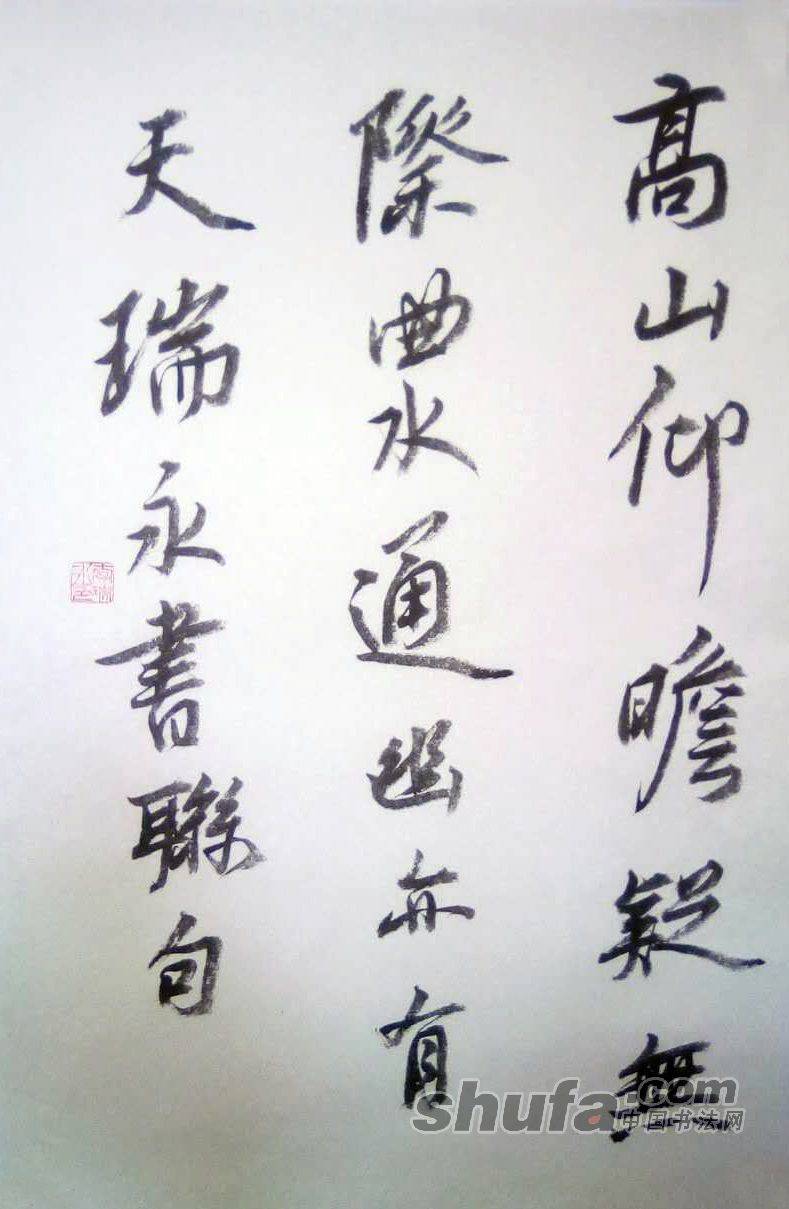 高山仰瞻疑無
際曲水通幽亦有
天瑞永書聯句
shufa.com
中国书法网